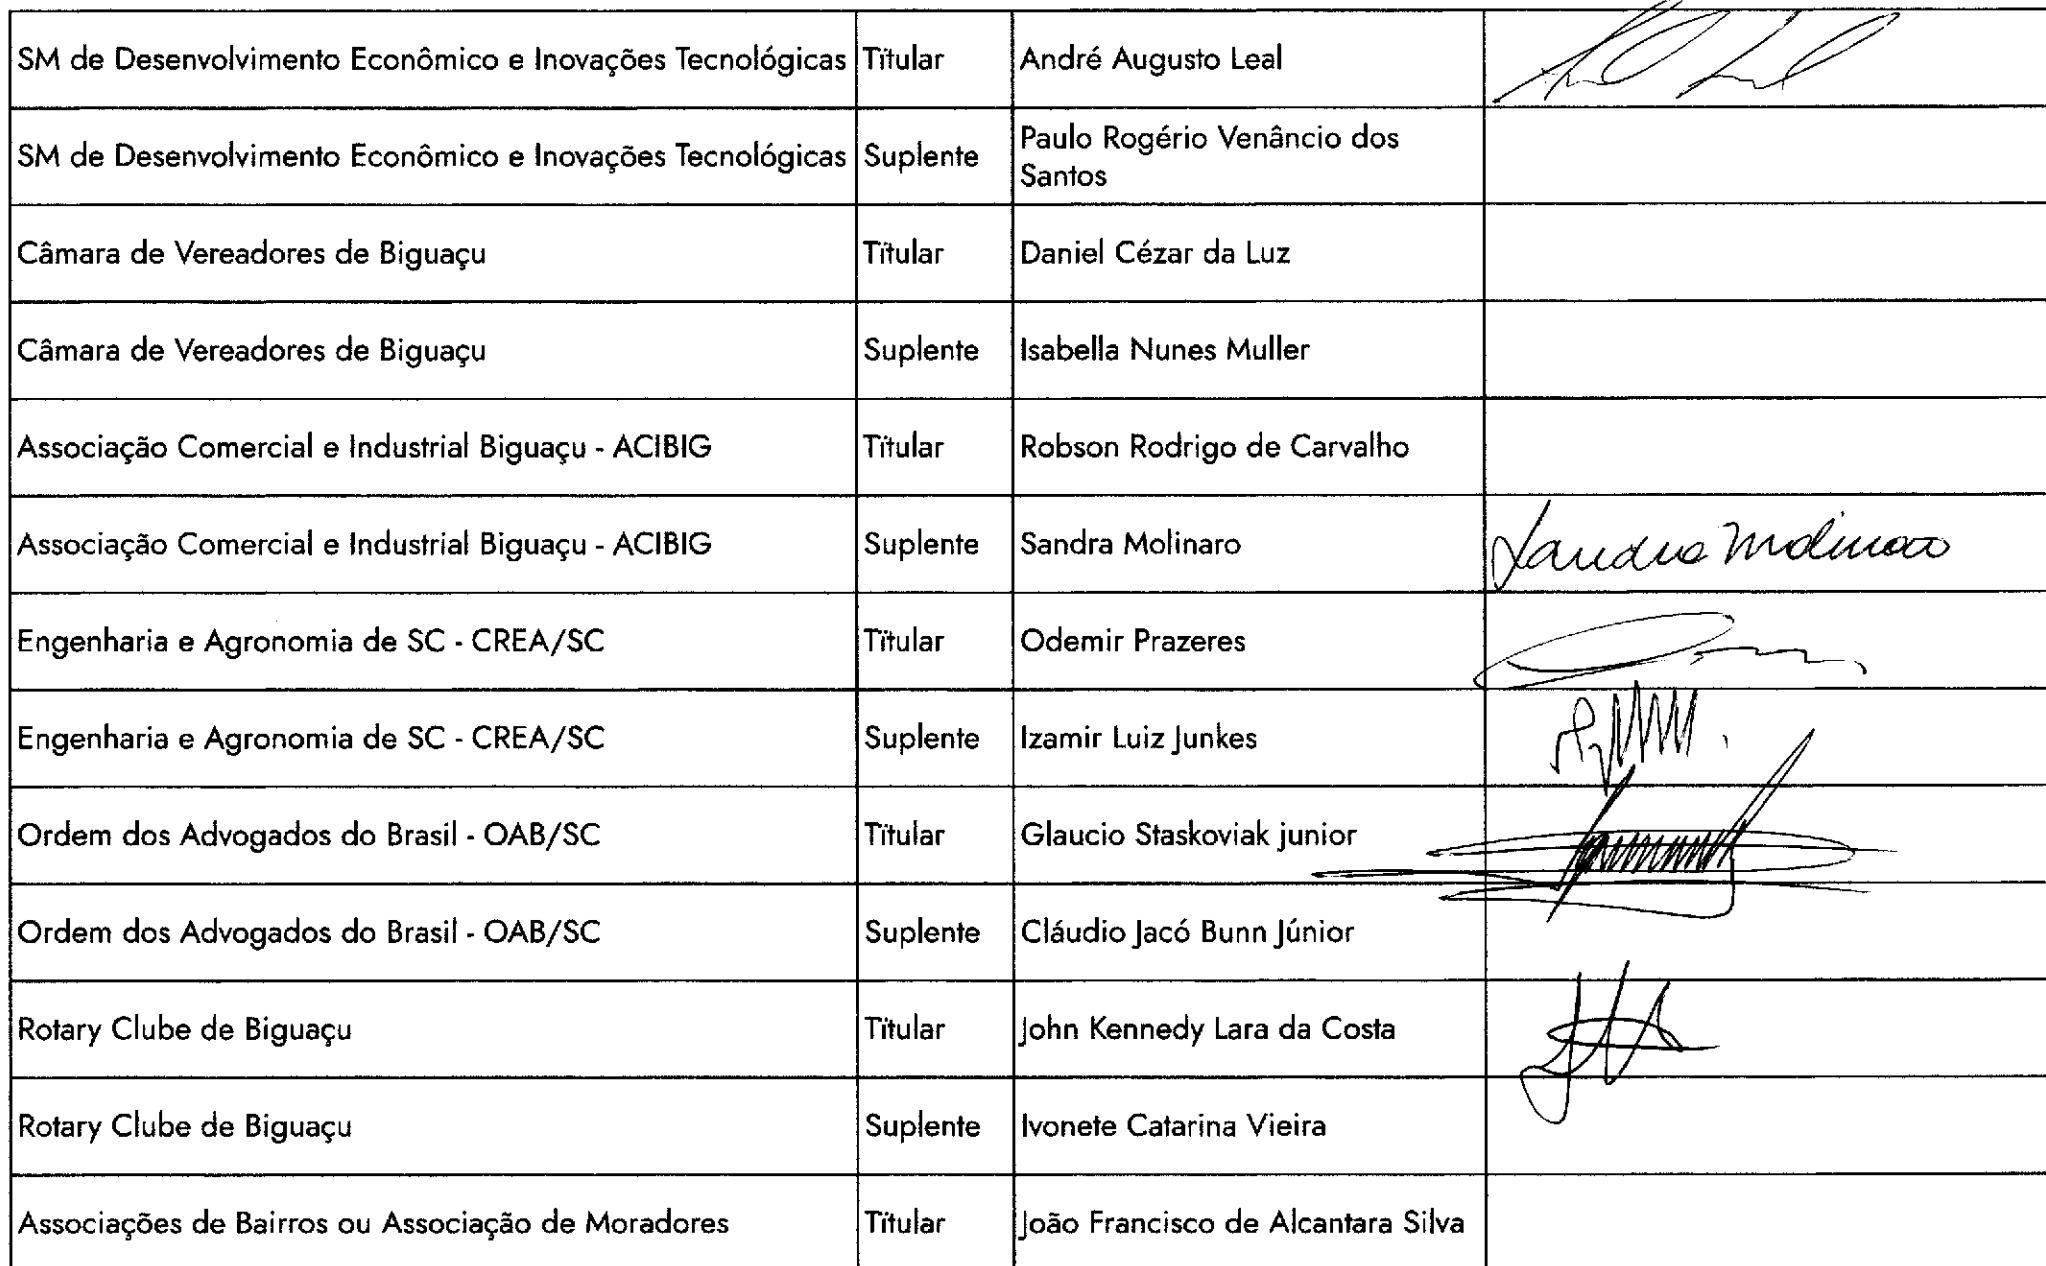 SM de Desenvolvimento Econômico e Inovações Tecnológicas Titular André Augusto Leal
SM de Desenvolvimento Econômico e Inovações Tecnológicas Suplente Paulo Rogério Venâncio dos
Santos
Câmara de Vereadores de Biguaçu Titular Daniel Cézar da Luz
Câmara de Vereadores de Biguaçu Suplente Isabella Nunes Muller
Associação Comercial e Industrial Biguaçu - ACIBIG Titular Robson Rodrigo de Carvalho
Associação Comercial e Industrial Biguaçu - ACIBIG Suplente Sandra Molinaro Sandra Molinaro
Engenharia e Agronomia de SC - CREA/SC Titular Odemir Prazeres
Engenharia e Agronomia de SC - CREA/SC Suplente Izamir Luiz Junkes
Ordem dos Advogados do Brasil - OAB/SC Titular Glaucio Staskoviak junior
Ordem dos Advogados do Brasil - OAB/SC Suplente Cláudio Jacó Bunn Júnior
Rotary Clube de Biguaçu Titular John Kennedy Lara da Costa
Rotary Clube de Biguaçu Suplente Ivonete Catarina Vieira
Associações de Bairros ou Associação de Moradores Titular João Francisco de Alcantara Silva